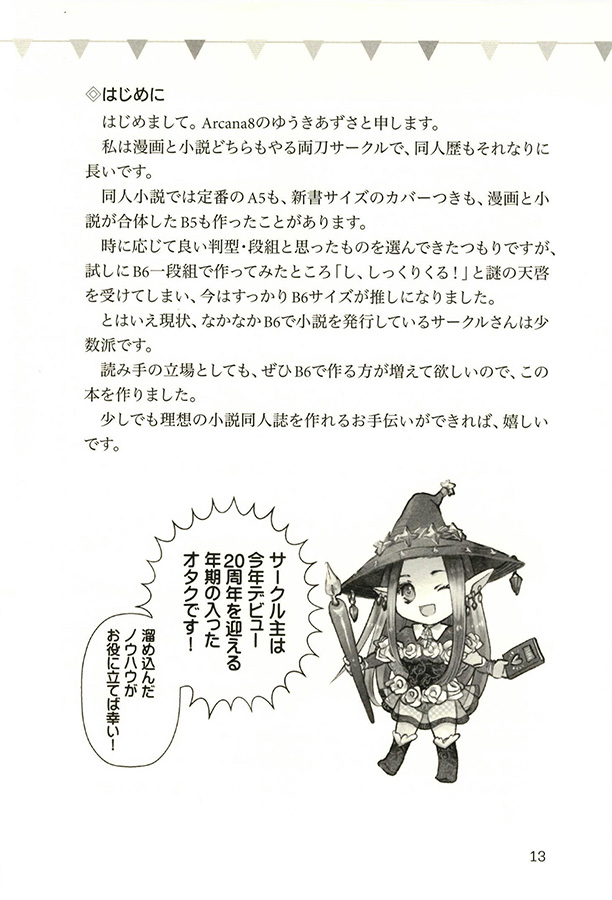 ◇はじめに
はじめまして。Arcana8のゆうきあずさと申します。
私は漫画と小説どちらもやる両刀サークルで、同人歴もそれなりに
長いです。
同人小説では定番のA5も、新書サイズのカバーつきも、漫画と小
説が合体したB5も作ったことがあります。
時に応じて良い判型・段組と思ったものを選んできたつもりですが、
試しにB6一段組で作ってみたところ「し、しっくりくる!」と謎の天啓
を受けてしまい、今はすっかりB6サイズが推しになりました。
とはいえ現状、なかなかB6で小説を発行しているサークルさんは少
数派です。
読み手の立場としても、ぜひB6で作る方が増えて欲しいので、この
本を作りました。
少しでも理想の小説同人誌を作れるお手伝いができれば、嬉しい
です。
サークル主は
今年デビュー
20周年を迎える
年期の入った
オタクです!
溜め込んだ
ノウハウが
お役に立てば幸い!
13